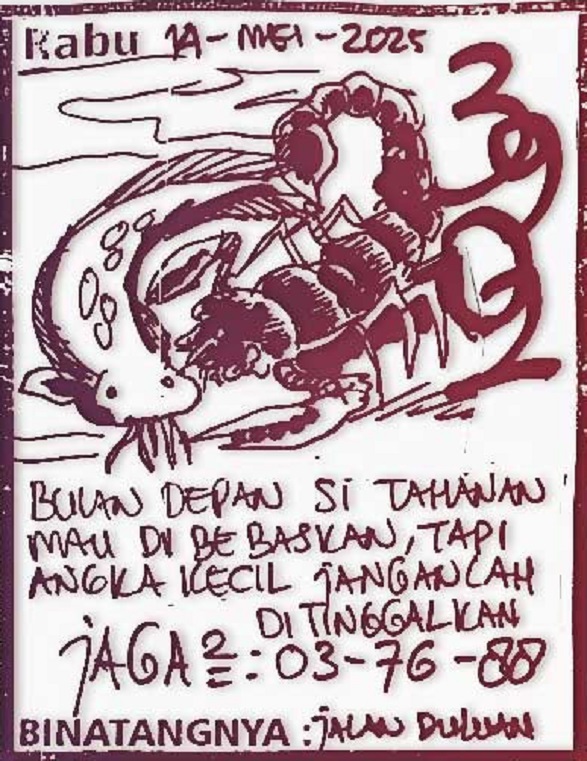 Rabu 14-MEI-2025
BULAN DEPAN SI TAHANAN
MAU DI BEBASKAN, TAPI
ANGKA KECIL JANGANLAH
DITINGGALKAN
JAGA2: 03-76-88
BINATANGNYA : JALAN DULUAN